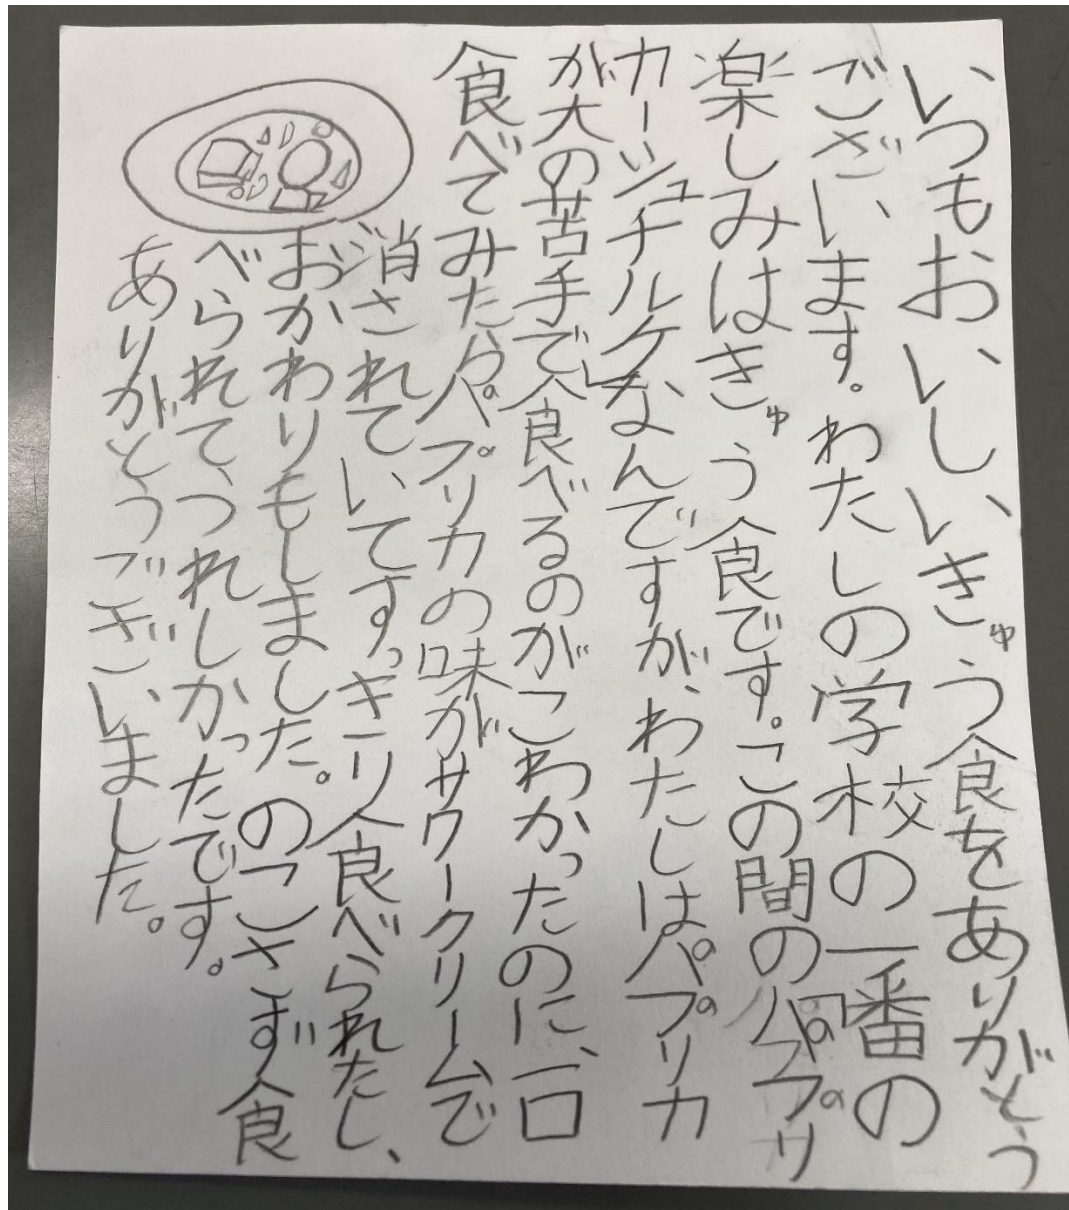 いつもおいしいきゅう食をありがとう
ございます。わたしの学校の一番の
楽しみはきゅう食です。この間の「パプリ
カーシュチルケ」なんですが、わたしはパプリカ
が大の苦手で食べるのがこわかったのに、一口
食べてみたらパプリカの味がサワークリームで
消されていてすっきり食べられたし、
おかわりもしました。のこさず食
べられてうれしかったです。
ありがとうございました。